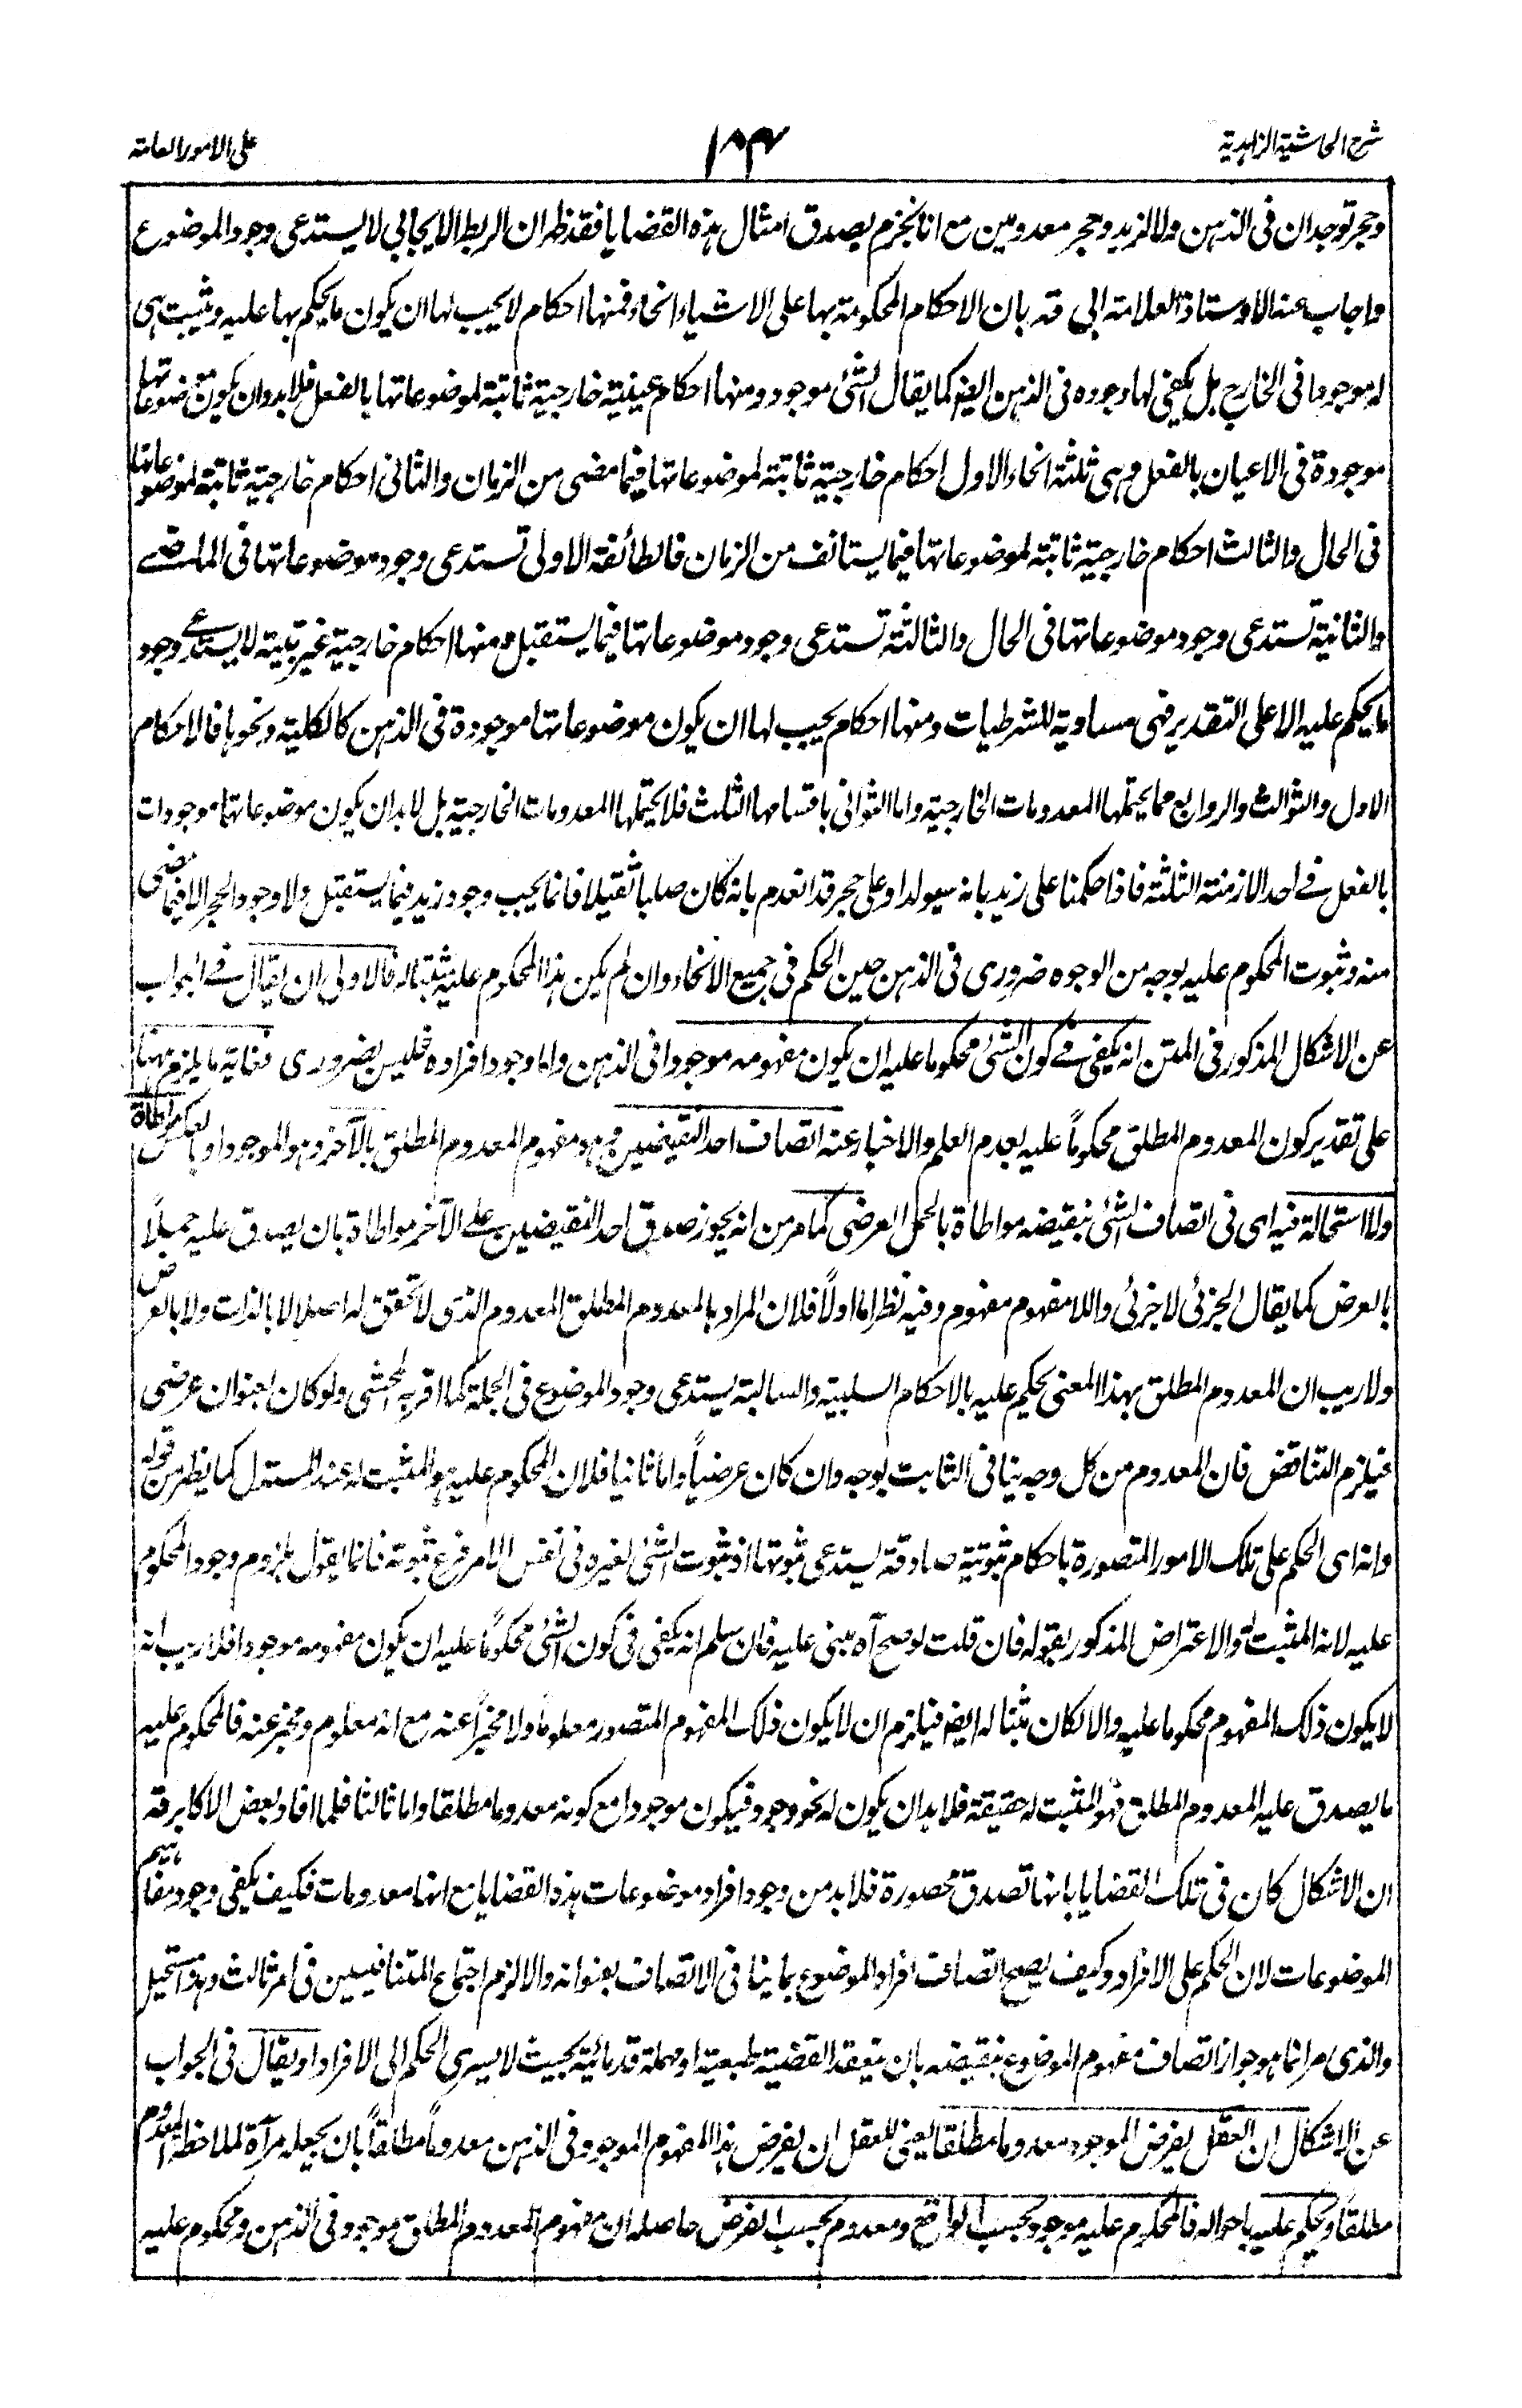 شرح الحاشية الزاهدية
١٨٣
على الامور العامة
وحجر توجدان فى الذهن ولا لزيد وحجر معدومين مع انا نجزم بصدق امثال هذه القضايا فقد ظهر ان الربط الايجابي لا يستدعى وجود الموضوع
واجاب عنه الاوستاذ العلامة ابى قد بان الاحكام المحكومة بها على الاشياء انحاء فمنها احكام لا يجب لها ان يكون ما يحكم بها عليه ويثبت هى
له موجودا فى الخارج بل يكفى لها وجوده فى الذهن ايضا كما يقال الشئ موجود ومنها احكام عينية خارجية ثابتة لموضوعاتها بالفعل فلا بد وان يكون موضوعاتها
موجودة فى الاعيان بالفعل وهى ثلثة انحاء الاول احكام خارجية ثابتة لموضوعاتها فيما مضى من الزمان والثانى احكام خارجية ثابتة لموضوعاتها
فى الحال والثالث احكام خارجية ثابتة لموضوعاتها فيما يستانف من الزمان فالطائفة الاولى تستدعى وجود موضوعاتها فى الماضے
والثانية تستدعى وجود موضوعاتها فى الحال والثالثة تستدعى وجود موضوعاتها فيما يستقبل ومنها احكام خارجية غير بتية لا يستدعى وجود
ما يحكم عليه الا على التقدير فهى مساوية للشرطيات ومنها احكام يجب لها ان يكون موضوعاتها موجودة فى الذهن كالكلية ونحوها فالاحكام
الاول والثوالث والروابع مما يحتملها المعدومات الخارجية واما الثوانى باقسامها الثلث فلا يحتملها المعدومات الخارجية بل لا بد ان يكون موضوعاتها موجودات
بالفعل فے احد الازمنة الثلثة فاذا حكمنا على زيد بانه سيولد او على حجر قد انعدم بانه كان صلبا ثقيلا فانما يجب وجود زيد فيما يستقبل ولا وجود الحجر الا فيما مضى
منه وثبوت المحكوم عليه بوجه من الوجوه ضرورى فى الذهن حين الحكم فى جميع الانحاء وان لم يكن هذا المحكوم عليه مثبتا له فالاولى ان يقال فے الجواب
عن الاشكال المذكور فى المتن انه يكفى فے كون الشئ محكوما عليه ان يكون مفهومه موجودا فى الذهن واما وجود افراده فليس بضرورى فغاية ما يلزم ههنا
على تقدير كون المعدوم المطلق محكوماً عليه بعدم العلم والاخبار عنه اتصاف احد النقيضين وهو مفهوم المعدوم المطلق بالآخر وهو الموجود او بالعكس مواطاة
ولا استحالة فيه اى فى اتصاف الشئ بنقيضه مواطاة بالحمل العرضى كما مر من انه يجوز صدق احد النقيضين على الآخر مواطاة بان يصدق عليه حملاً
بالعرض كما يقال الجزئى لا جزئى واللا مفهوم مفهوم وفيه نظر اما اولاً فلان المراد بالمعدوم المطلق المعدوم الذى لا تحقق له اصلا لا بالذات ولا بالعرض
ولا ريب ان المعدوم المطلق بهذا المعنى يحكم عليه بالاحكام السلبية والسالبة يستدعى وجود الموضوع فى الجملة كما اقر به المحشى ولو كان بعنوان عرضى
فيلزم التناقض فان المعدوم من كل وجه ينافى الثابت بوجه وان كان عرضياً واما ثانيا فلان المحكوم عليه هو المثبت له عند المستدل كما يظهر من قوله
وانه اى الحكم على تلك الامور المتصورة باحكام ثبوتية صادقة يستدعى ثبوتها اذ ثبوت الشئ لغيره فى نفس الامر فرع ثبوته فانما يقول بلزوم وجود المحكوم
عليه لانه المثبت له والاعتراض المذكور بقوله فان قلت لو صح آه مبنى عليه فان سلم انه يكفى فى كون الشئ محكوماً عليه ان يكون مفهومه موجودا فلا ريب انه
لا يكون ذلك المفهوم محكوما عليه والا لكان مثبتا له ايضا فيلزم ان لا يكون ذلك المفهوم المتصور معلوماً ولا مخبراً عنه مع انه معلوم ومخبر عنه فالمحكوم عليه
ما يصدق عليه المعدوم المطلق فهو المثبت له حقيقة فلا بد ان يكون له نحو وجود فيكون موجودا مع كونه معدوما مطلقا واما ثالثا فلما افاد بعض الاكابر قد
ان الاشكال كان فى تلك القضايا بانها تصدق محصورة فلا بد من وجود افراد موضوعات هذه القضايا مع انها معدومات فكيف يكفى وجود مفاهيم
الموضوعات لان الحكم على الافراد وكيف يصح اتصاف افراد الموضوع بما ينافى الاتصاف بعنوانه والا لزم اجتماع المتنافيين فى امر ثالث وهو مستحيل
والذى مر انما هو جواز اتصاف مفهوم الموضوع بنقيضه بان ينعقد القضية طبعية او مهملة قدمائية بحيث لا يسرى الحكم الى الافراد او يقال فى الجواب
عن الاشكال ان العقل يفرض الموجود معدوما مطلقا يعنى للعقل ان يفرض هذا المفهوم الموجود فى الذهن معدوماً مطلقاً بان يجعله مرآة لملاحظة المعدوم
مطلقاً ويحكم عليه باحواله فالمحكوم عليه موجود بحسب الواقع ومعدوم بحسب الفرض حاصله ان مفهوم المعدوم المطلق موجود فى الذهن ومحكوم عليه